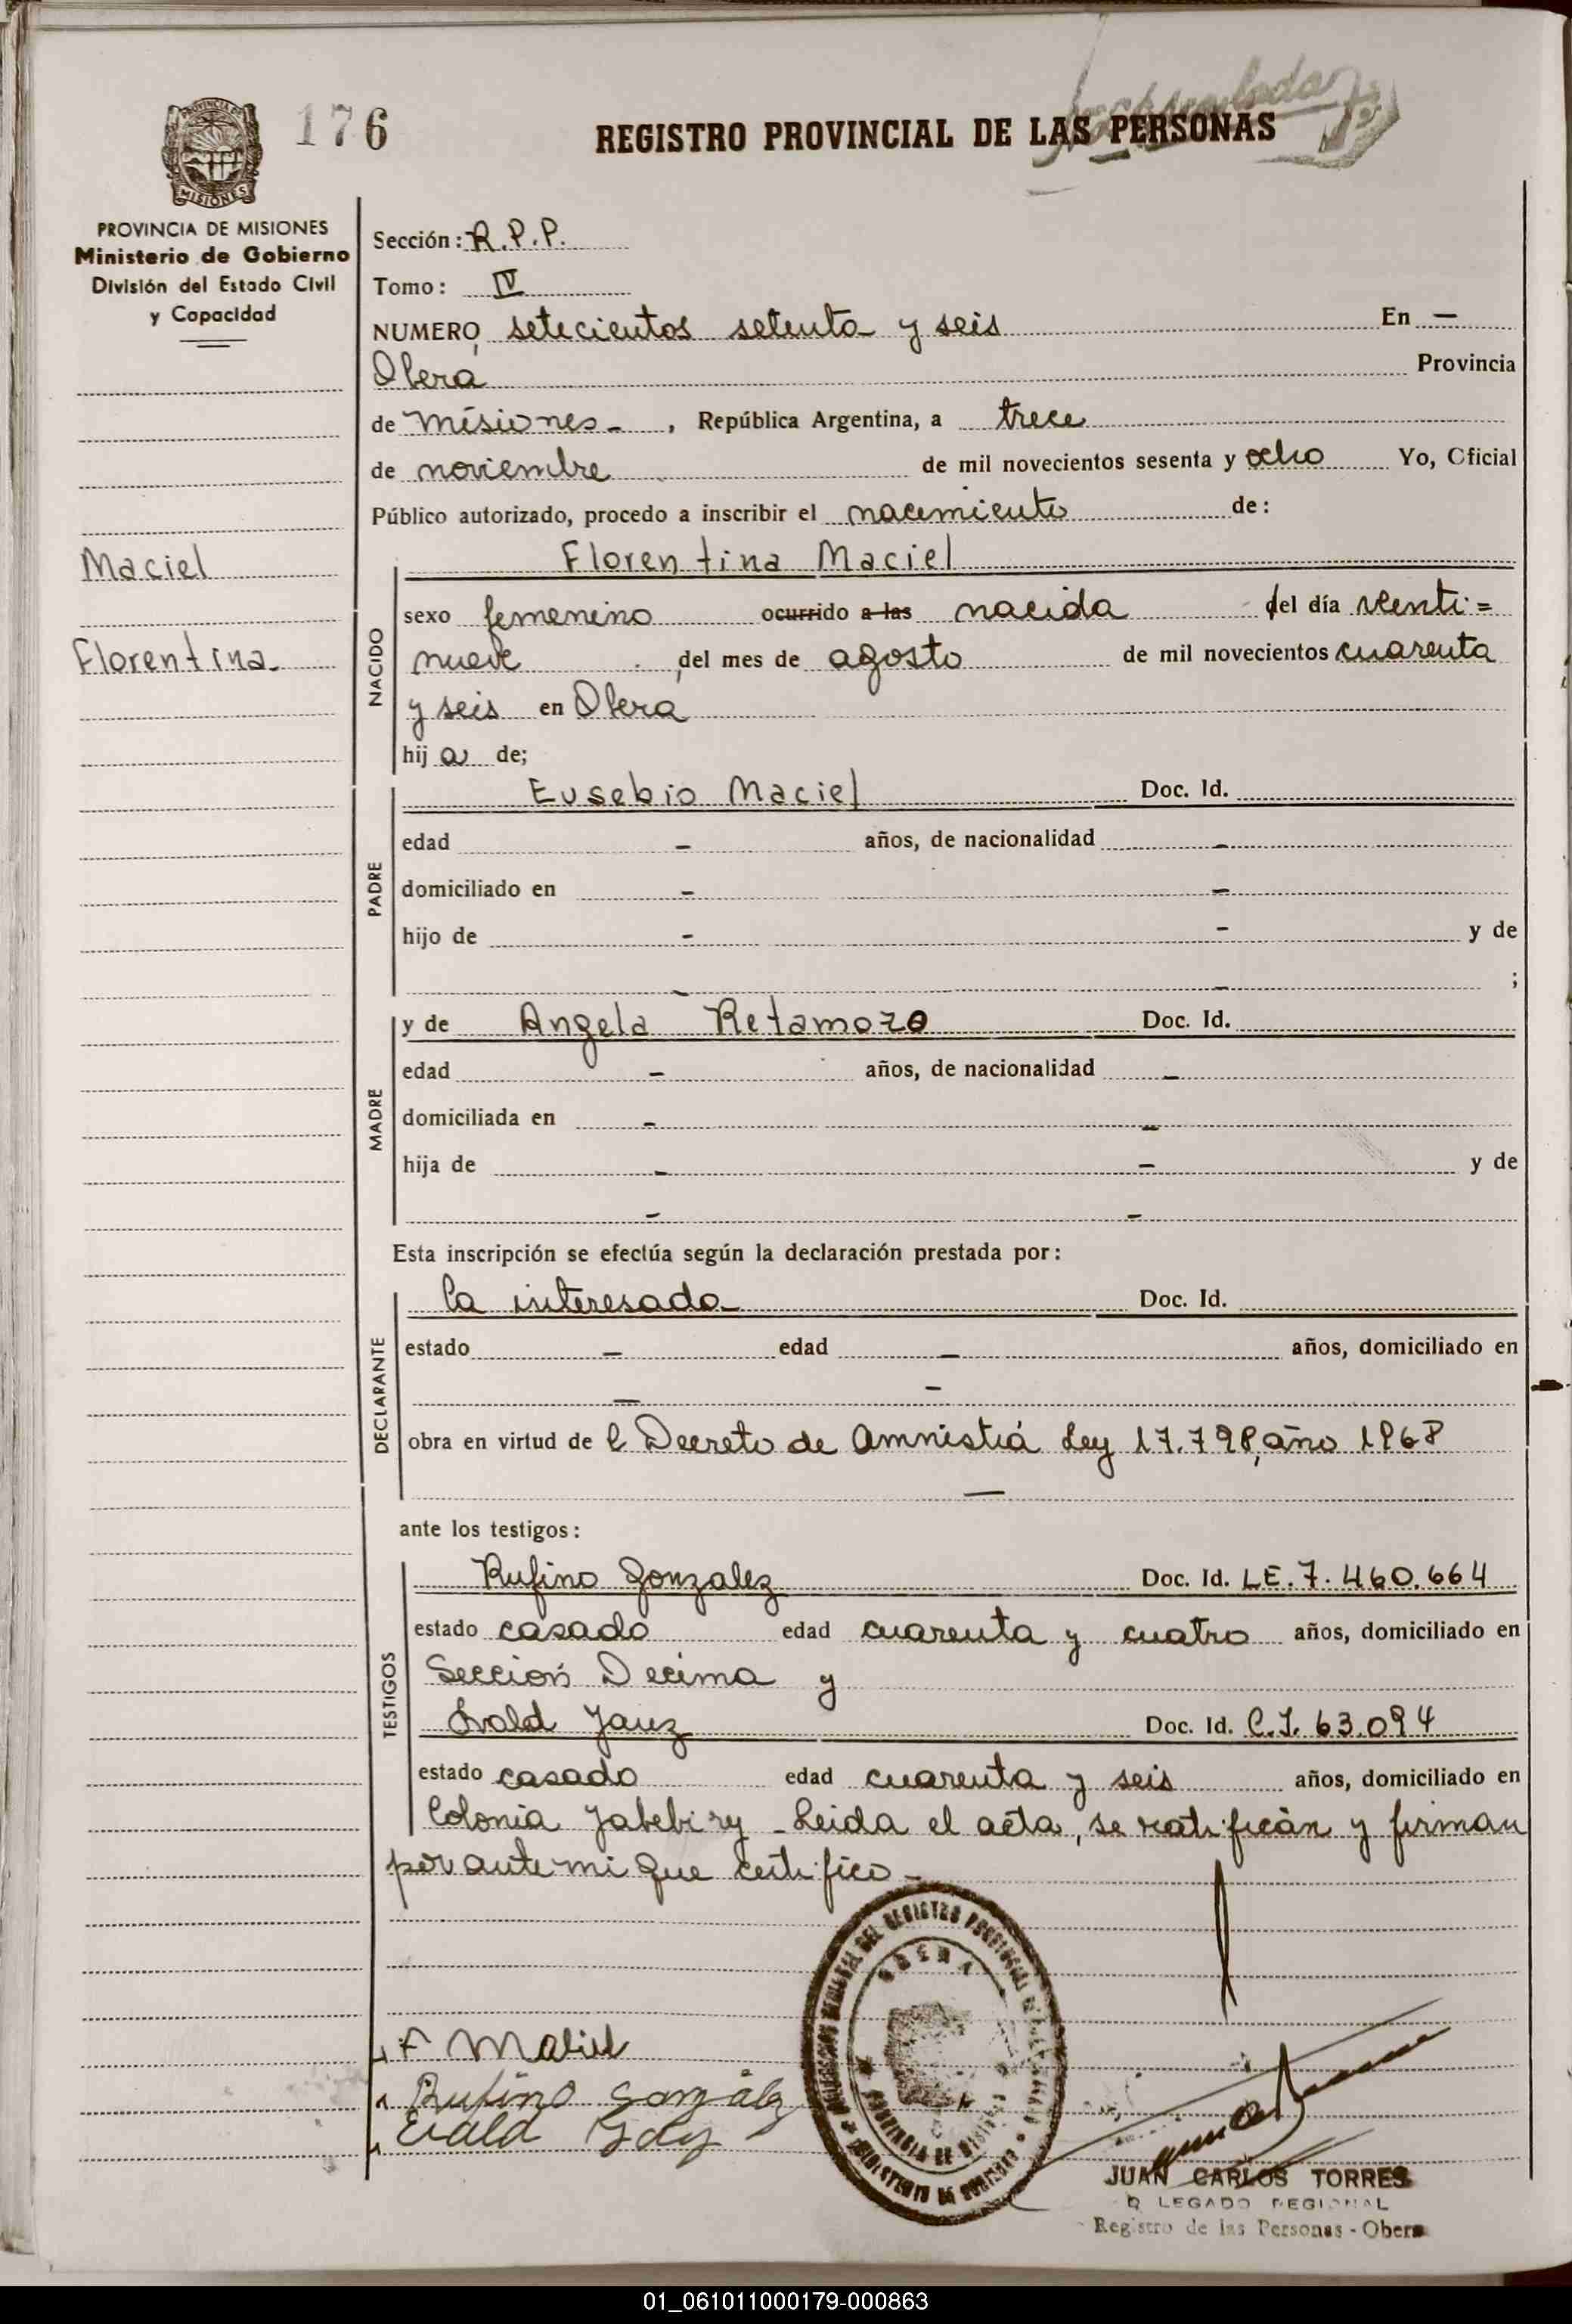 176
REGISTRO PROVINCIAL DE LAS PERSONAS
PROVINCIA DE
MISIONES
PROVINCIA DE MISIONES
Ministerio de Gobierno
División del Estado Civil
y Capacidad
Maciel
Florentina
Sección: R.P.P.
Tomo: IV
NUMERO, setecientos setenta y seis En —
Obera Provincia
de Misiones -, República Argentina, a trece
de noviembre de mil novecientos sesenta y ocho Yo, Oficial
Público autorizado, procedo a inscribir el nacimiento de:
NACIDO
Florentina Maciel
sexo femenino ocurrido a las nacida del día venti=
nueve del mes de agosto de mil novecientos cuarenta
y seis en Obera
hija de;
PADRE
Eusebio Maciel Doc. Id.
edad - años, de nacionalidad -
domiciliado en - -
hijo de - - y de
- - ;
MADRE
y de Angela Retamozo Doc. Id.
edad - años, de nacionalidad -
domiciliada en - -
hija de - - y de
- -
Esta inscripción se efectúa según la declaración prestada por:
DECLARANTE
la interesada Doc. Id.
estado - edad - años, domiciliado en
- -
obra en virtud de l Decreto de Amnistiá Ley 17.798, año 1968
—
ante los testigos:
TESTIGOS
Rufino Gonzalez Doc. Id. LE. 7.460.664
estado casado edad cuarenta y cuatro años, domiciliado en
Sección Decima y
Doc. Id. C.I. 63.094
estado casado edad cuarenta y seis años, domiciliado en
Colonia Yabebiry - Leida el acta, se ratificán y firman
por ante mi que certifico -
F Maciel
Rufino González
Evald
OBERA
PROVINCIA DE MISIONES
MINISTERIO DE GOBIERNO
JUAN CARLOS TORRES
DELEGADO REGIONAL
Registro de las Personas - Obera
01_061011000179-000863